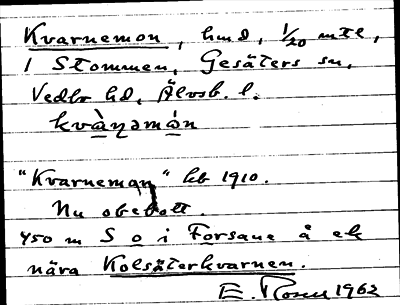 Kvarnemon, hmd, 1/20 mtl,
1 Stommen, Gesäters sn,
Vedbo hd, Älvsb. l.
kvàṇəmón
"Kvarneman" kb 1910.
Nu obebott.
450 m S o i Forsane å ek
nära Kolsäterkvarnen.
E. 1962